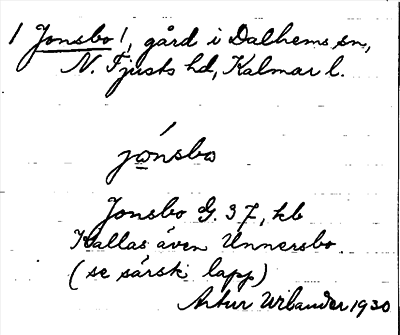 1 Jonsbo 1, gård i Dalhems sn,
N. Tjusts hd, Kalmar l.
jo̲nsbo
Jonsbo G. 37, kb
Kallas även Unnersbo.
(se särsk. lapp)
Artur Wilander 1930